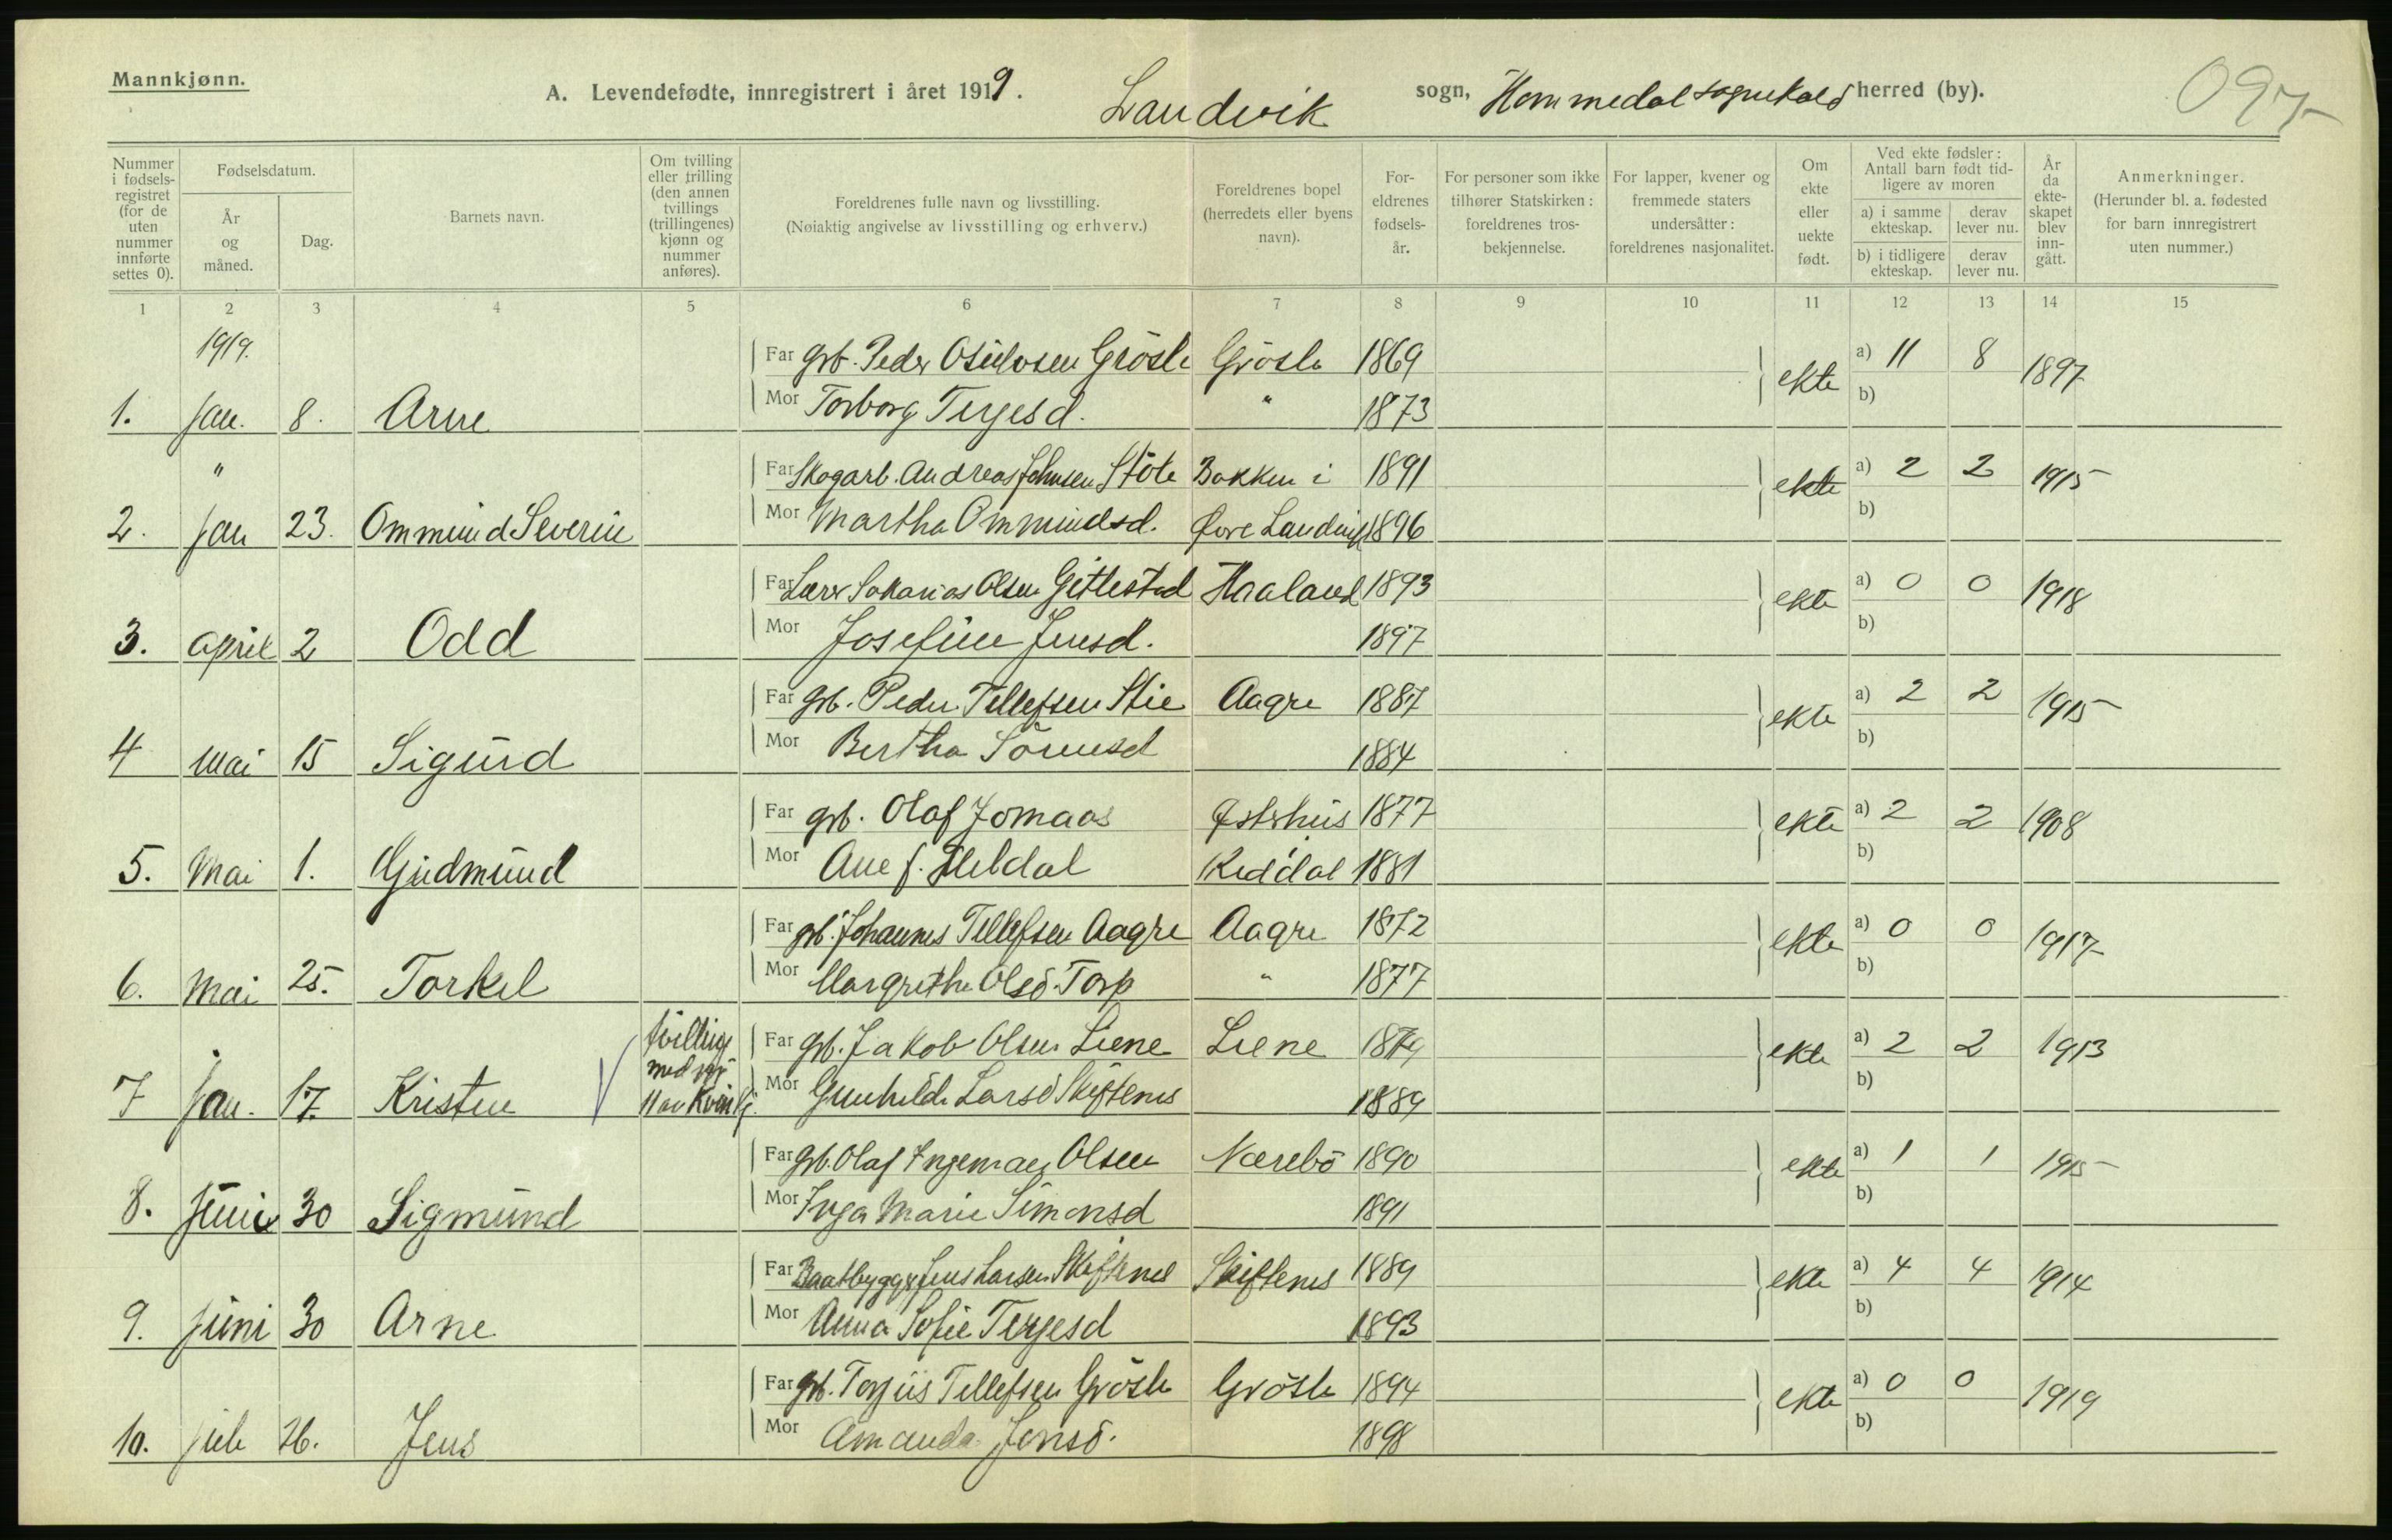 Mannkjønn.
A. Levendefødte, innregistrert i året 1919. Landvik sogn, Hommedal sognekald herred (by).
097
Nummer i fødselsregistret (for de uten nummer innførte settes 0).
Fødselsdatum.
År og måned.
Dag.
Barnets navn.
Om tvilling eller trilling (den annen tvillings (trillingenes) kjønn og nummer anføres).
Foreldrenes fulle navn og livsstilling.
(Nøiaktig angivelse av livsstilling og erhverv.)
Foreldrenes bopel (herredets eller byens navn).
Foreldrenes fødselsår.
For personer som ikke tilhører Statskirken: foreldrenes trosbekjennelse.
For lapper, kvener og fremmede staters undersåtter: foreldrenes nasjonalitet.
Om ekte eller uekte født.
Ved ekte fødsler: Antall barn født tidligere av moren
a) i samme ekteskap. derav lever nu.
b) i tidligere ekteskap. derav lever nu.
År da ekteskapet blev inngått.
Anmerkninger.
(Herunder bl. a. fødested for barn innregistrert uten nummer.)
1 2 3 4 5 6 7 8 9 10 11 12 13 14 15
1919.
Far grb. Peder Grösle Grösle 1869 ekte a) 11 8 1897
1. Jan. 8. Arne Mor Torborg Terjesd. " 1873 b)
" Far Skogarb. Andreas Johnsen Stöle Bakken i 1891 ekte a) 2 2 1915
2. Jan 23. Ommund Severin Mor Martha Ommundsd. Øvre Landvik 1896 b)
Far Lærer Sakarias Olsen Gitlestad Haaland 1893 ekte a) 0 0 1918
3. April 2 Odd Mor Josefine Jensd. 1897 b)
Far grb. Peder Tellefsen Stie Aagre 1887 ekte a) 2 2 1915
4 Mai 15 Sigurd Mor Bertha Sörensd 1884 b)
Far grb. Olaf Jomaas Østerhus 1877 ekte a) 2 2 1908
5. Mai 1. Gudmund Mor Ane f. Reddal 1881 b)
Far grb. Johannes Tellefsen Aagre Aagre 1872 ekte a) 0 0 1917
6. Mai 25. Torkel Mor Margrethe Olsd. Torp " 1877 b)
tvilling Far grb. Jakob Olsen Liene Liene 1879 ekte a) 2 2 1913
med nr
7 Jan. 17. Kristen 11 av Kvinkj. Mor Gunhilde Larsd Skiftenes 1889 b)
Far grb. Olaf Ingeman Olsen Nærebö 1890 ekte a) 1 1 1915
8. Juni 30 Sigmund Mor Inga Marie Simonsd 1891 b)
Far Baatbygger Jens Larsen Skiftenes Skiftenes 1889 ekte a) 4 4 1914
9. Juni 30 Arne Mor Anna Sofie Terjesd 1893 b)
Far grb. Torjus Tellefsen Grösle Grösle 1894 ekte a) 0 0 1919
10. Juli 26. Jens Mor Amanda Jensd. 1898 b)